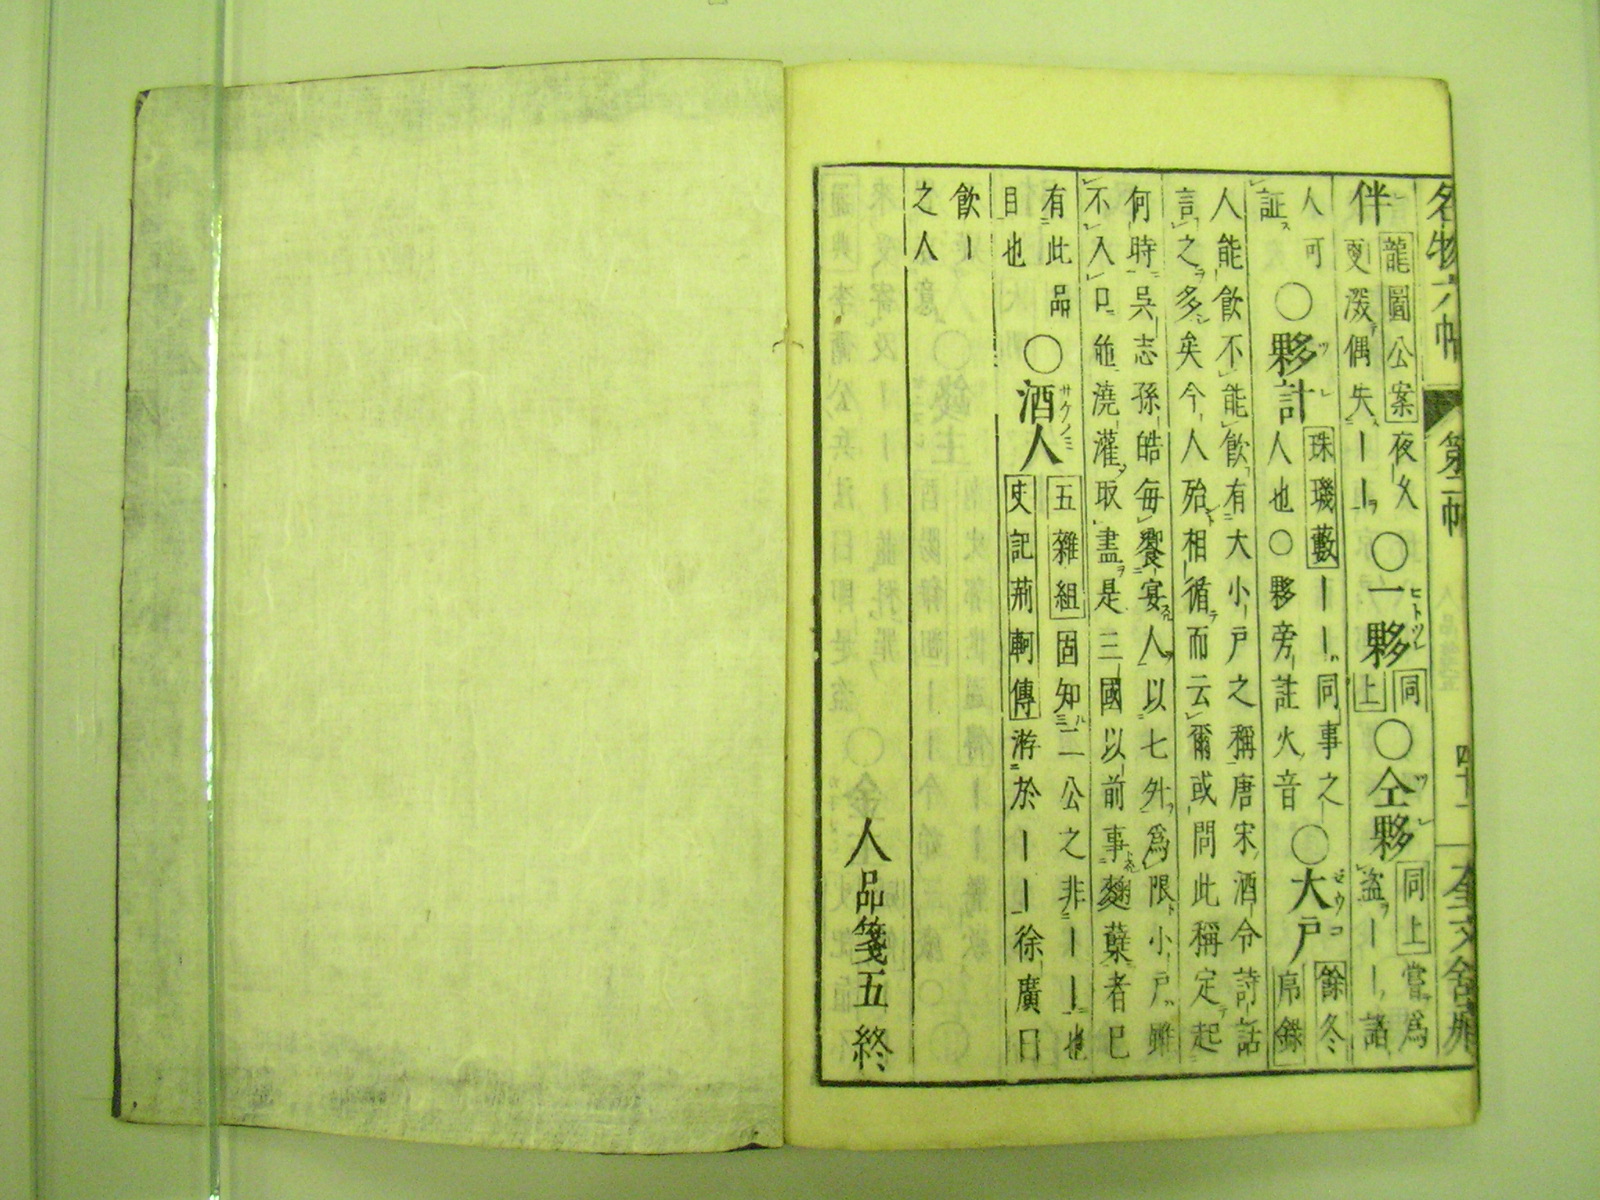 名物六帖 第二帖 四十一 奎文舘
伴 龍圖公案 夜々
更深偶失ーー ○一夥 同上 ○仝夥 同上 嘗爲
ヒトツレ
ツレ
盜ーー諮
人可
証 ○夥計 珠璣藪 ーー同事之
ツレ
人也○夥旁註火音 ○大戸 餘冬
ゼウコ
序錄
人能飲不能飲有大小戸之稱唐宋酒令詩話
言之多矣今人殆相循而云爾或問此稱定起
何時吳志孫皓每饗宴人以七升爲限小戸雖
不入口並澆灌取盡是三國以前事麴蘖者已
有此品
目也 ○酒人 五雜組 固知二公之非ーー也
サケノミ
史記荊軻傳 游於ーー徐廣曰
飲ー
之人
人品箋五終